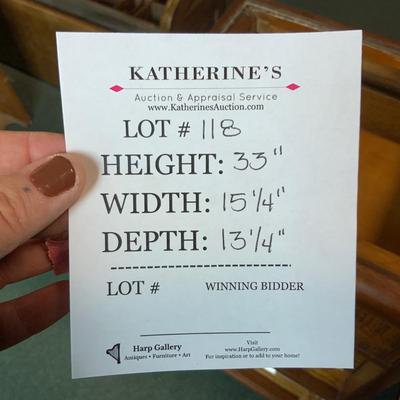 KATHERINE'S
Auction & Appraisal Service
www.KatherinesAuction.com
LOT # 118
HEIGHT: 33"
WIDTH: 15 1/4"
DEPTH: 13 1/4"
LOT # WINNING BIDDER
Harp Gallery
Antiques • Furniture • Art
Visit
www.HarpGallery.com
For inspiration or to add to your home!